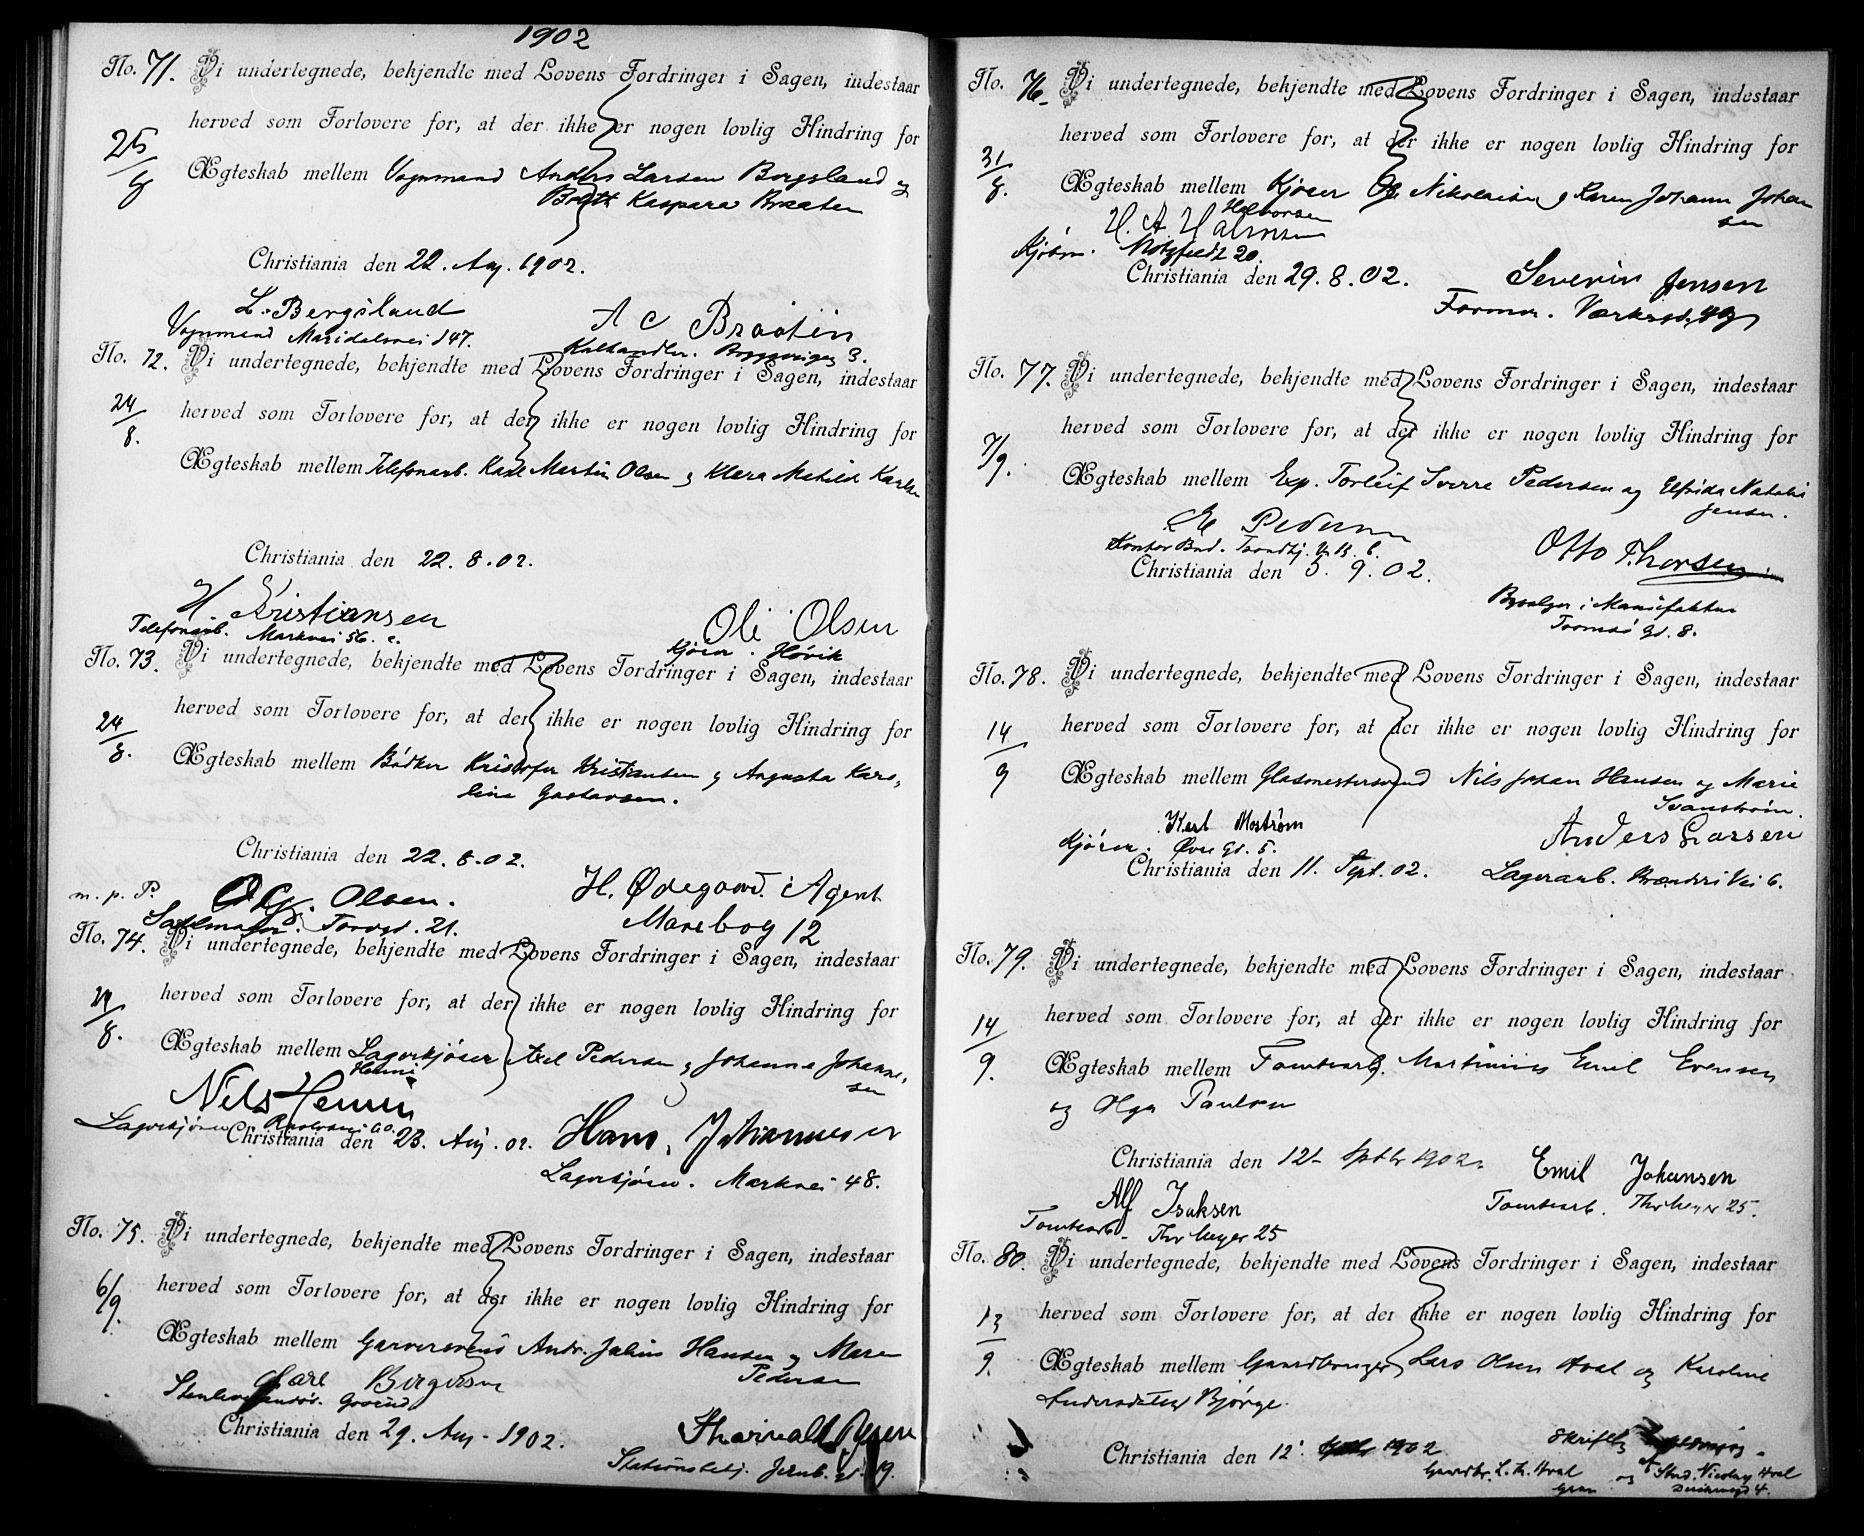 1902
No. 71. Vi undertegnede, bekjendte med Lovens Fordringer i Sagen, indestaar
herved som Forlovere for, at der ikke er nogen lovlig Hindring for
25/8
Ægteskab mellem Vognmand Anders Larsen Bergsland og
Kaspara Braaten
Christiania den 22. Aug. 1902.
L. Bergsland
Vognmand Maridalsvei 147.
A C Braaten
Kulhandler. 3.
No. 72. Vi undertegnede, bekjendte med Lovens Fordringer i Sagen, indestaar
24/8.
herved som Forlovere for, at der ikke er nogen lovlig Hindring for
Ægteskab mellem Telefonarb. Karl Martin Olsen og Klara Matilde Karlsen
Christiania den 22. 8. 02.
H. Kristiansen
Telefonarb. Markvei 56. c.
Ole Olsen
Kjører. Høvik
No. 73. Vi undertegnede, bekjendte med Lovens Fordringer i Sagen, indestaar
24/8.
herved som Forlovere for, at der ikke er nogen lovlig Hindring for
Ægteskab mellem Bødker Kristofer Kristiansen og Augusta Karo-
line Gustavsen.
Christiania den 22. 8. 02.
m. p. P. O. G. Olsen.
Sadelmager. Torvgd. 21.
H. Ødegaard. Agent
Marebog 12
No. 74. Vi undertegnede, bekjendte med Lovens Fordringer i Sagen, indestaar
24/8.
herved som Forlovere for, at der ikke er nogen lovlig Hindring for
Ægteskab mellem Lagerkjører Axel Pedersen og Johanne Johanne-
sen
Nils
Lagerkjører
Christiania den 23. Aug. 02.
Hans Johannesen
Lagerkjører. Markvei 48.
No. 75. Vi undertegnede, bekjendte med Lovens Fordringer i Sagen, indestaar
6/9.
herved som Forlovere for, at der ikke er nogen lovlig Hindring for
Ægteskab mellem Garversvend Andr. Julius Hansen og Maren
Pedersen
Carl Birgersen
Grorud
Christiania den 29. Aug. 1902.
Thorvald
Stationsbetj. Jernb. gd. 19.
No. 76. Vi undertegnede, bekjendte med Lovens Fordringer i Sagen, indestaar
herved som Forlovere for, at der ikke er nogen lovlig Hindring for
31/8.
Ægteskab mellem Kjører Ole Nikolaisen og Karen Johanne Johan
sen
Halvorsen
H. A. Halvorsen
Kjører. Motzfeldt 20.
Christiania den 29. 8. 02.
Severin Jensen
Former. Værksgd. 49
No. 77. Vi undertegnede, bekjendte med Lovens Fordringer i Sagen, indestaar
herved som Forlovere for, at der ikke er nogen lovlig Hindring for
7/9.
Ægteskab mellem Exp. Torleif Sverre Pedersen og Elfrida Natalie
Jensen.
Pedersen
Kontor Bud. Trondhj. V. 13. 6.
Christiania den 5. 9. 02.
Otto Thorsen
Bysælger i Manufaktur
Tromsø Gd. 8.
No. 78. Vi undertegnede, bekjendte med Lovens Fordringer i Sagen, indestaar
herved som Forlovere for, at der ikke er nogen lovlig Hindring for
14/9
Ægteskab mellem Glasmestersvend Nils Johan Hansen og Marie
Svanstrøm.
Karl Moström
Kjører. Øvre Gd. 5.
Christiania den 11. Sept. 02.
Anders Larsen
Lagerarb. Brænneri Vei 6.
No. 79. Vi undertegnede, bekjendte med Lovens Fordringer i Sagen, indestaar
herved som Forlovere for, at der ikke er nogen lovlig Hindring for
14/9.
Ægteskab mellem Tomtearb. Martinius Emil Evensen
og Olga Paulsen
Christiania den 12te Septbr 1902.
Emil Johansen
Tomtearb. Thv Meyer 25.
Alf Isaksen
Tomtearb. Thv Meyer 25
No. 80. Vi undertegnede, bekjendte med Lovens Fordringer i Sagen, indestaar
herved som Forlovere for, at der ikke er nogen lovlig Hindring for
13/9.
Ægteskab mellem Gaardbruger Lars Olsen Hval og Karoline
Andersdatter Bjørge.
Christiania den 12. Septbr 1902
Skriftlig
Gaardbr. L. Th. Hval og af Stud. Nicolay Hval
Gran